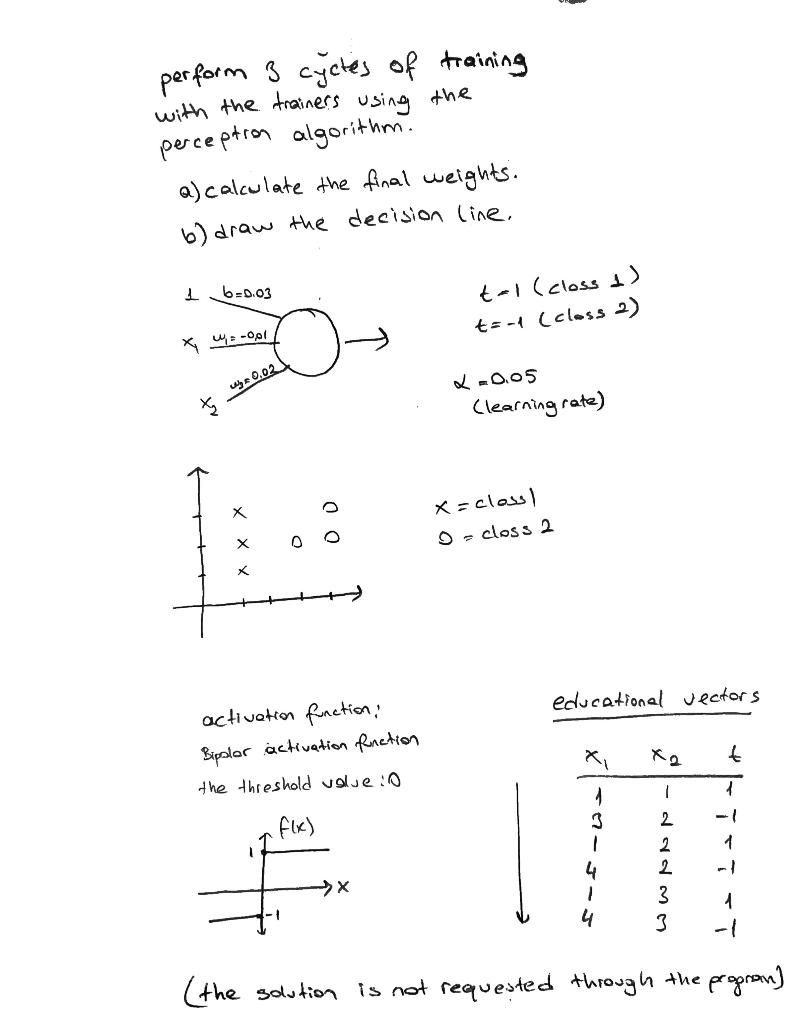 perform 3 cycles of training
with the trainers using the
perceptron algorithm.
a) calculate the final weights.
b) draw the decision line.
1 b=0.03
x₁ w₁=-0,01
w₂=0.02
x₂
t=1 (class 1)
t=-1 (class 2)
α=0.05
(learning rate)
x = class1
o = class 2
activation function:
Bipolar activation function
the threshold value:0
f(x)
1
x
-1
educational vectors
x₁ x₂ t
1 1 1
3 2 -1
1 2 1
4 2 -1
1 3 1
4 3 -1
(the solution is not requested through the program)